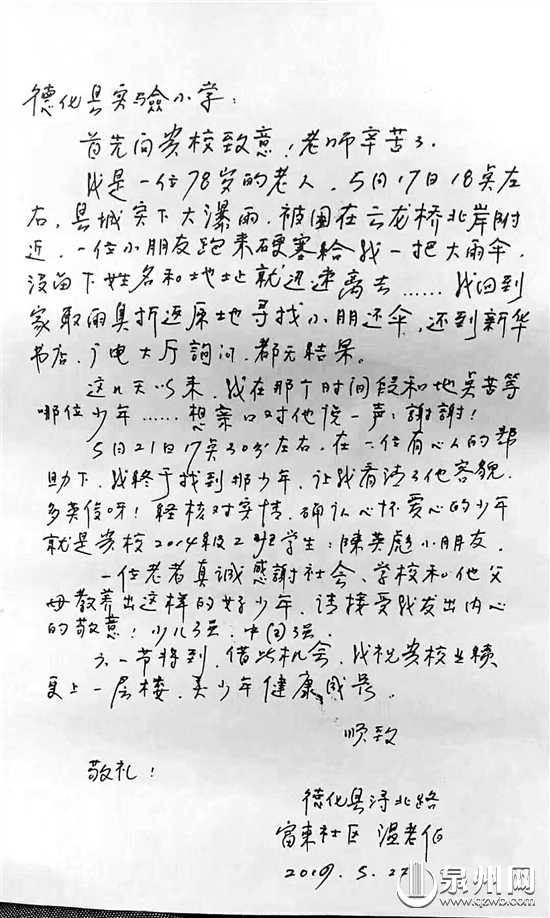 德化县实验小学:
首先向贵校致意!老师辛苦了.
我是一位78岁的老人.5月17日18点左
右.县城突下大瀑雨.被困在云龙桥北岸附
近.一位小朋友跑来硬塞给我一把大雨伞.
没留下姓名和地址就迅速离去……我回到
家取雨具折返原地寻找小朋还伞.还到新华
书店.广电大厅詢问.都无结果。
这几天以来.我在那个时间段和地点苦等
哪位少年……想亲口对他说一声:謝謝!
5月21日17点30分左右.在一位有心人的帮
助下.我终于找到那少年.让我看清了他容貌.
多英俊呀!经核对实情.确认心怀爱心的少年
就是贵校2014级2班学生:陳英彪小朋友.
一位老者真诚感謝社会、学校和他父
母教养出这样的好少年.请接受我发出内心
的敬意!少儿强.中国强.
六一节将到.借此机会.我祝贵校业绩
更上一层楼.美少年健康成長。
顺致
敬礼!
德化县浔北路
富東社区 温老伯
2019.5.22
泉州网
www.qzwb.com